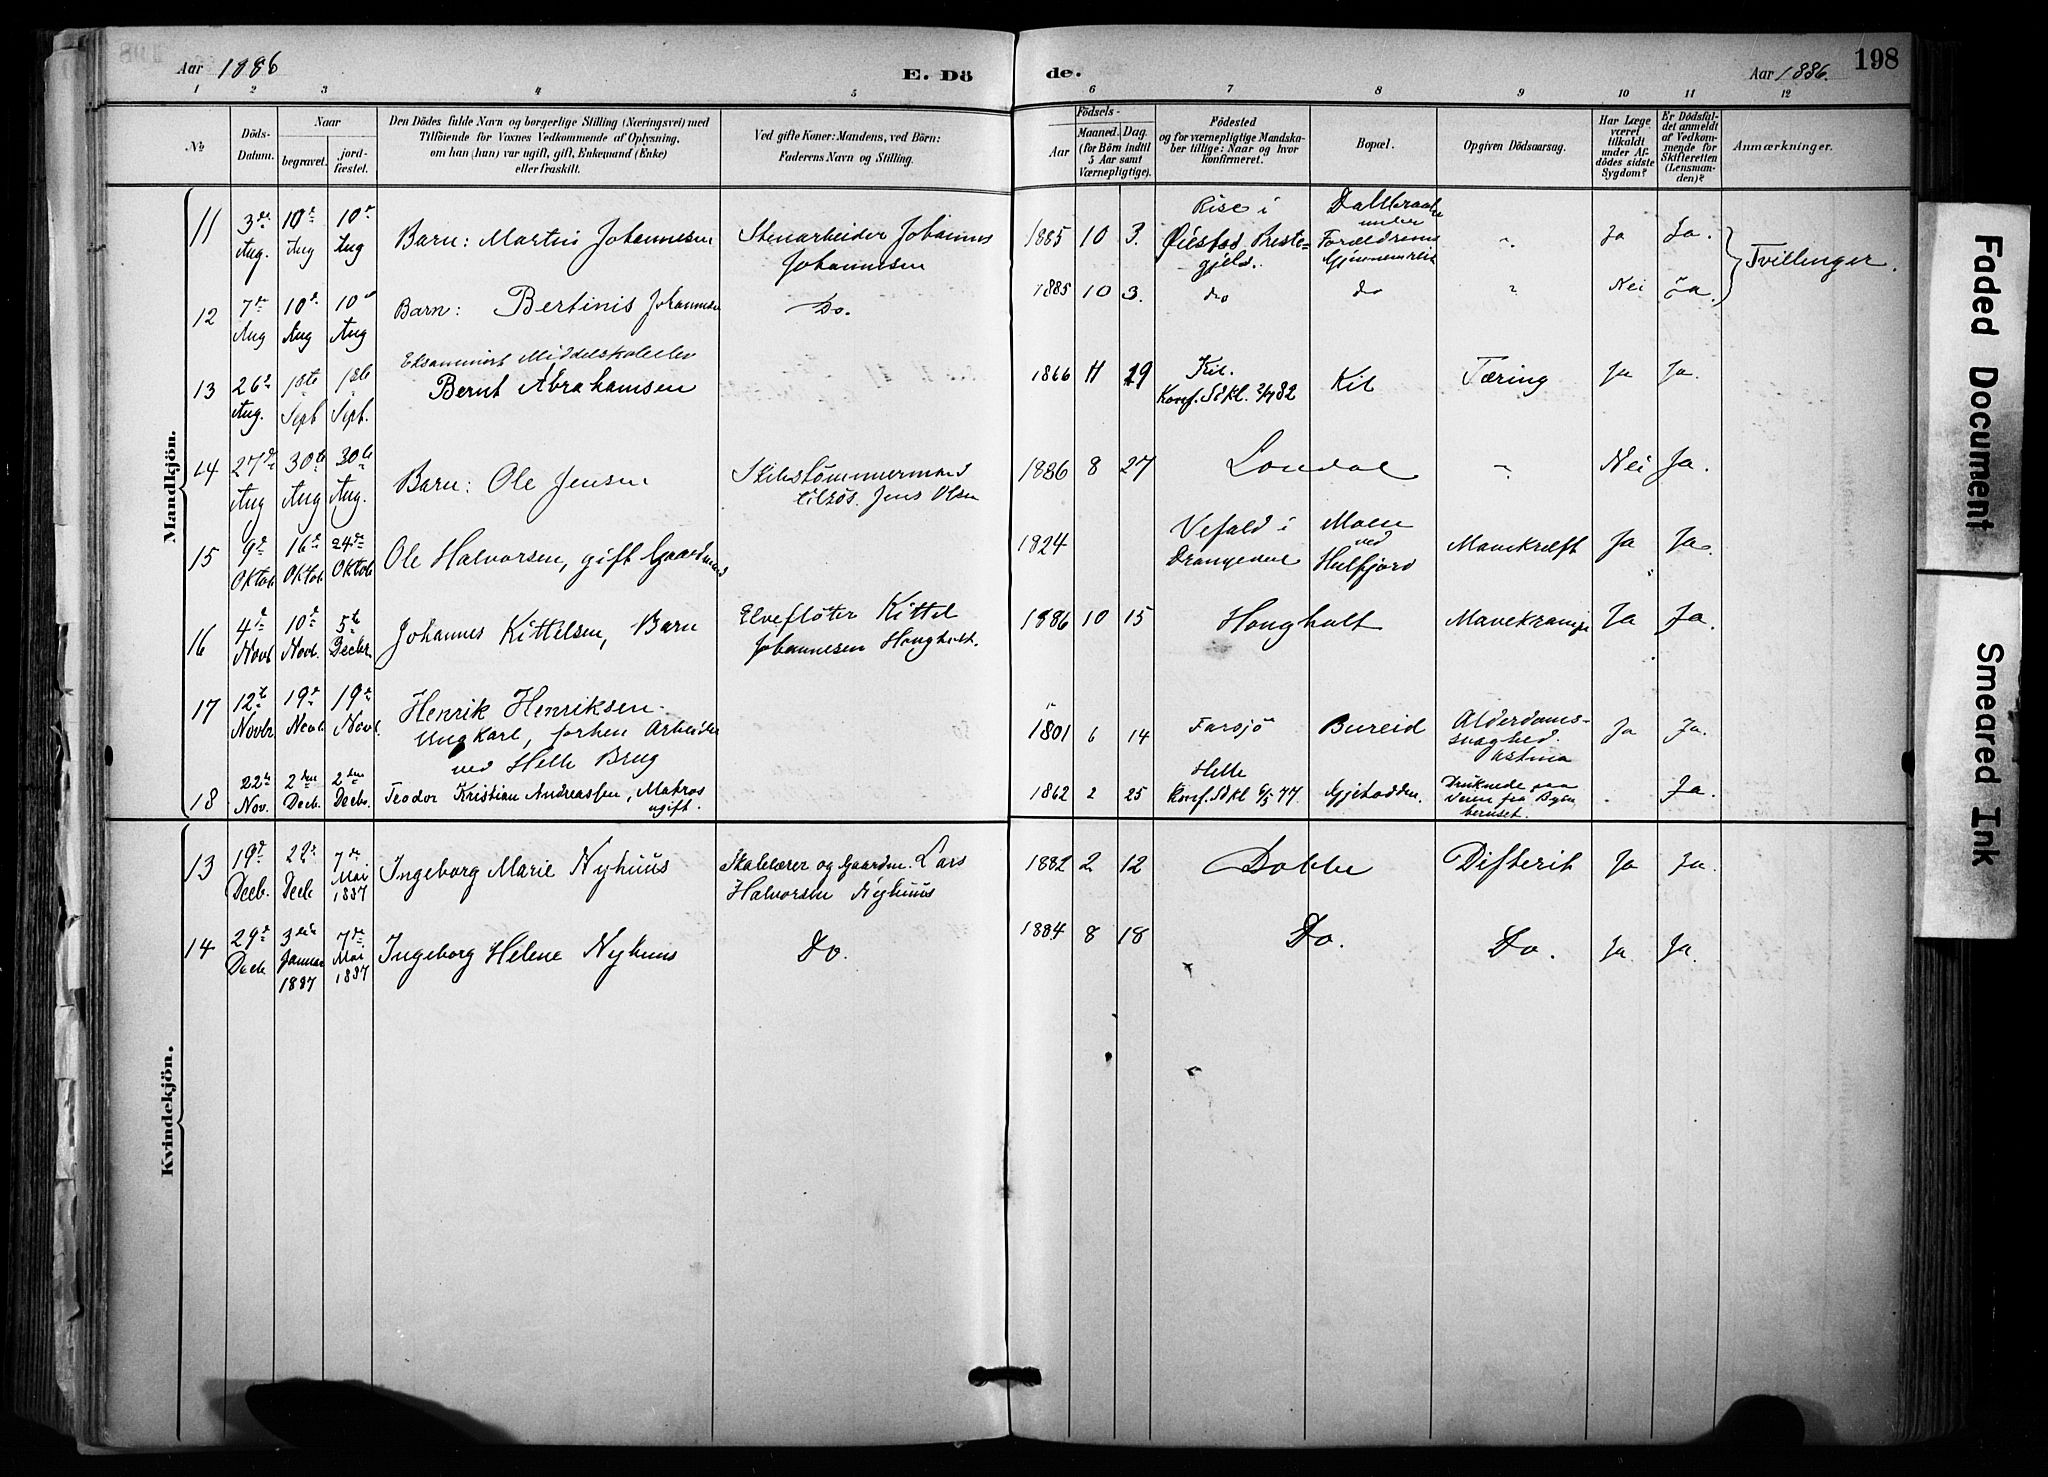 Aar 1886
E. Dö
de.
Aar 1886.
198
1 2 3 4 5 6 7 8 9 10 11 12
№
Döds-
Datum.
Naar
begravet.
jord-
fæstet.
Den Dödes fulde Navn og borgerlige Stilling (Næringsvei) med
Tilföiende for Voxnes Vedkommende af Oplysning,
om han (hun) var ugift, gift, Enkemand (Enke)
eller fraskilt.
Ved gifte Koner: Mandens, ved Börn:
Faderens Navn og Stilling.
Födsels-
Aar
Maaned. Dag.
(for Börn indtil
5 Aar samt
Værnepligtige).
Födested
og for værnepligtige Mandska-
ber tillige: Naar og hvor
konfirmeret.
Bopæl.
Opgiven Dödsaarsag.
Har Læge
været
tilkaldt
under Af-
dödes sidste
Sygdom?
Er Dödsfal-
det anmeldt
af Vedkom-
mende for
Skifteretten
(Lensman-
den)?
Anmærkninger.
Mandkjön.
11
3die Aug.
10de Aug
10de Aug
Barn: Martin Johannesen
Stenarbeider Johannes
Johannesen
1885 10 3.
Rise i
Øiestad Preste-
gjeld.
under
Forældrenes
"
Ja
Ja.
Tvillinger.
12
7de Aug
10de Aug
10de Aug
Barn: Bertinis Johannesen
Do.
1885 10 3.
do
do
"
Nei
Ja.
13
26de Aug.
1ste Sept
1ste Sept.
Eksamineret Middelskoleelev
Bernt Abrahamsen
1866 11 29
Kil.
Konf. Skl. 2/7 82
Kil
Tæring
Ja
Ja.
14
27de Aug
30te Aug
30te Aug.
Barn: Ole Jensen
Skibstømmermand
tilsøs. Jens Olsen
1886 8 27
Londal
"
Nei
Ja.
15
9de Oktob
16de Oktob
24de Oktob
Ole Halvorsen, gift Gaardmand
1824
Vefald i
Drangedal
Moen
ved
Helfjord
Mavekræft
Ja
Ja.
16
4de Novb.
10de Novb.
5te Decbr.
Johannes Kittelsen, Barn
Elvefløter Kittel
Johannesen Hougholt.
1886 10 15
Hougholt
Mavekrampe
Ja
Ja.
17
12te Novbr
19de Novb
19de Novb.
Henrik Henriksen.
Ungkarl, forhen Arbeider
ved Helle Brug
1801 6 14
Farsjö
Bureid
Alderdoms-
svaghed.
Astma
Ja
Ja.
18
22de Nov.
2den Decb.
2den Decbr.
Teodor Kristian Andreassen, Matros
ugift.
1862 2 25
Helle
Konf. Skl 6/5 77.
Gjetodden.
Druknede paa
Veien fra Byen
beruset.
Ja.
Kvindekjön.
13
19de Decb.
22de Decb
7de Mai 1887
Ingeborg Marie Nyhuus
Skolelærer og Gaardm. Lars
Halvorsen Nyhuus
1882 2 12
Dobbe
Difterit
Ja
Ja.
14
29de Decb
3die Januar 1887
7de Mai 1887
Ingeborg Helene Nyhuus
Do.
1884 8 18
Do.
Do.
Ja.
Ja.
Faded Document
Smeared Ink